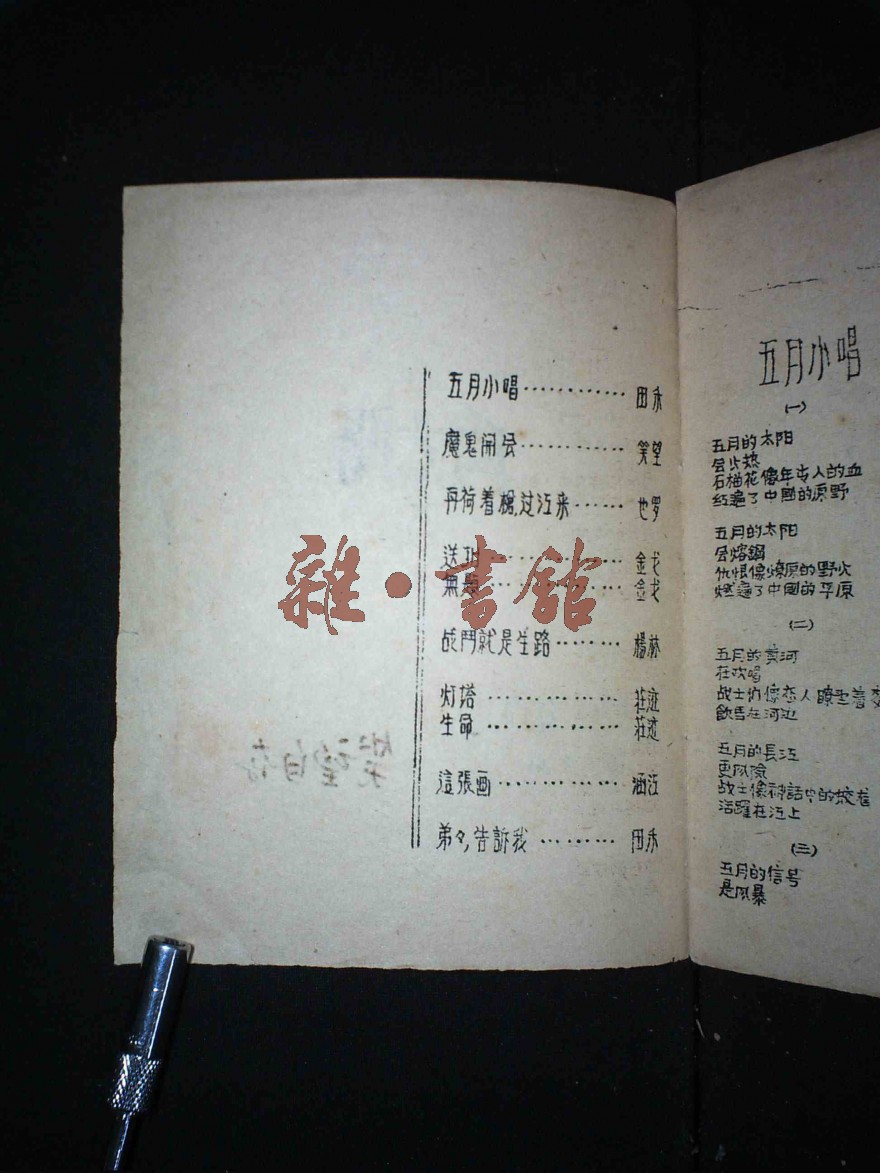 五月小唱············田永
魔鬼闹会···········笑望
再荷着槍,过江来······也罗
送············金戈
無題············金戈
战鬥就是生路········楊林
灯塔············莊迹
生命············莊迹
這張画···········涵江
弟々,告訴我·········田永
笑望自存
雜·書館
五月小唱
(一)
五月的太阳
会火热
石榴花像年青人的血
红遍了中國的原野
五月的太阳
会熔鋼
仇恨像燎原的野火
燃遍了中國的平原
(二)
五月的黄河
在欢唱
战士们像恋人瞭望着
飲馬在河边
五月的長江
更风险
战士像神話中的蛟龙
活躍在江上
(三)
五月的信号
是风暴